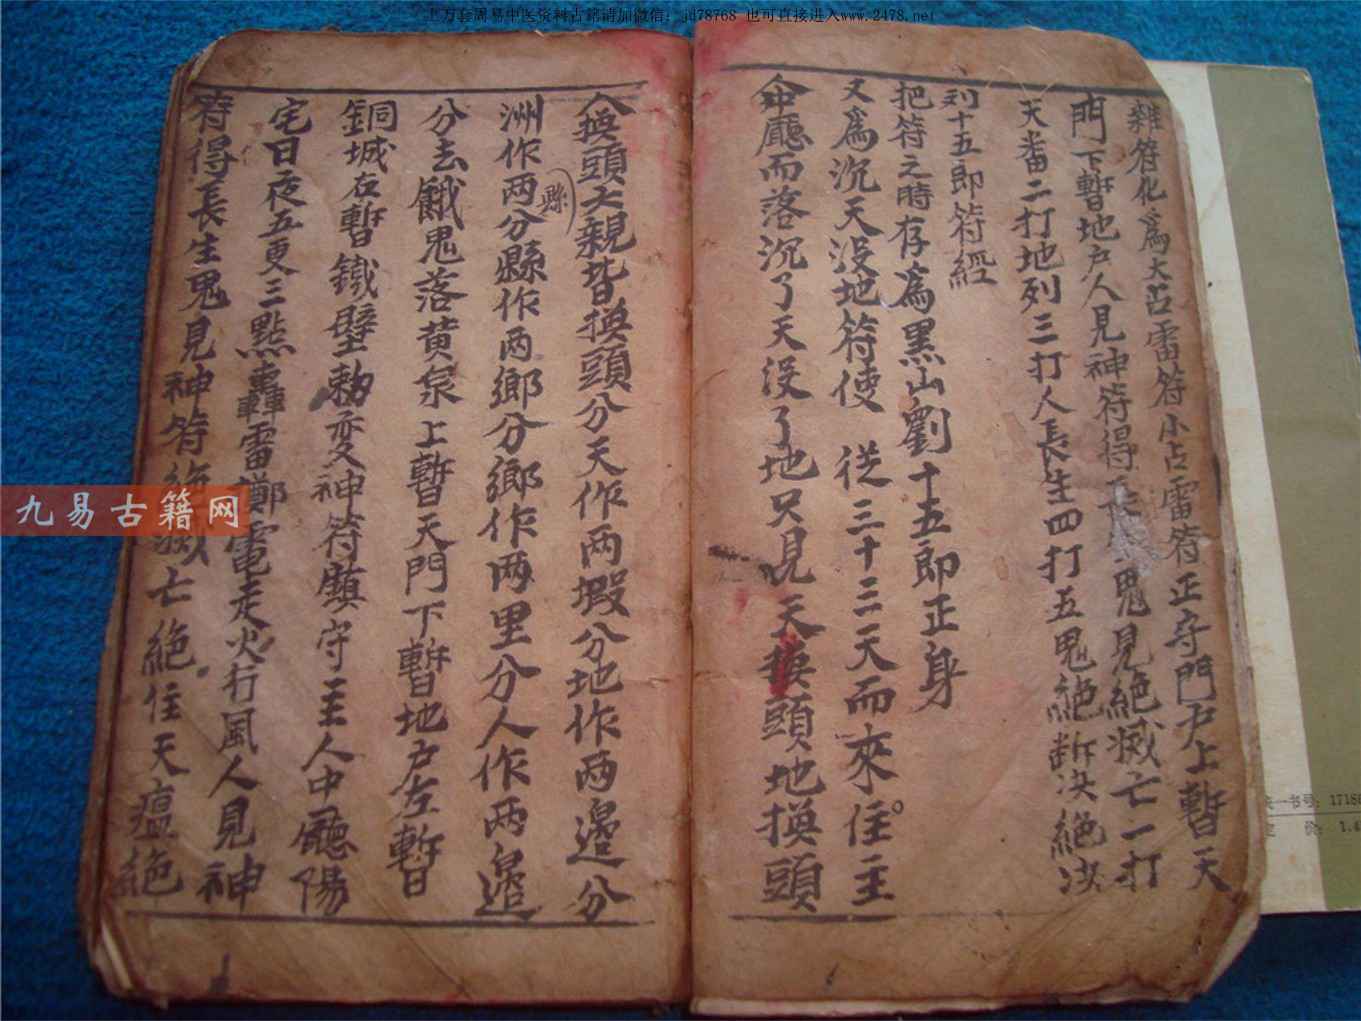 上万套周易中医资料古籍请加微信: jd78768 也可直接进入www.2478.net
雜符化為大占雷符小占雷符正守門户上暫天
門下暫地户人見神符得長生鬼見絕滅亡一打
天番二打地列三打人長生四打五鬼絕断决絕决
列十五郎符經
把符之時存為黑山劉十五郎正身
又為沉天没地符使 從三十三天而來住主
人中廳而落沉了天没了地只見天換頭地換頭
人換頭大親皆換頭分天作两塅分地作两邉分
洲作两分縣作两鄉分鄉作两里分人作两邉
縣
分去餓鬼落黄泉上暫天門下暫地户左暫
銅城右暫鐵壁勑变神符鎮守主人中廳陽
宅日夜五更三點轟雷擲電走火行風人見神
符得長生鬼見神符絕滅亡絕住天瘟絕
九易古籍网
统一书号: 1718
定 价: 1.4